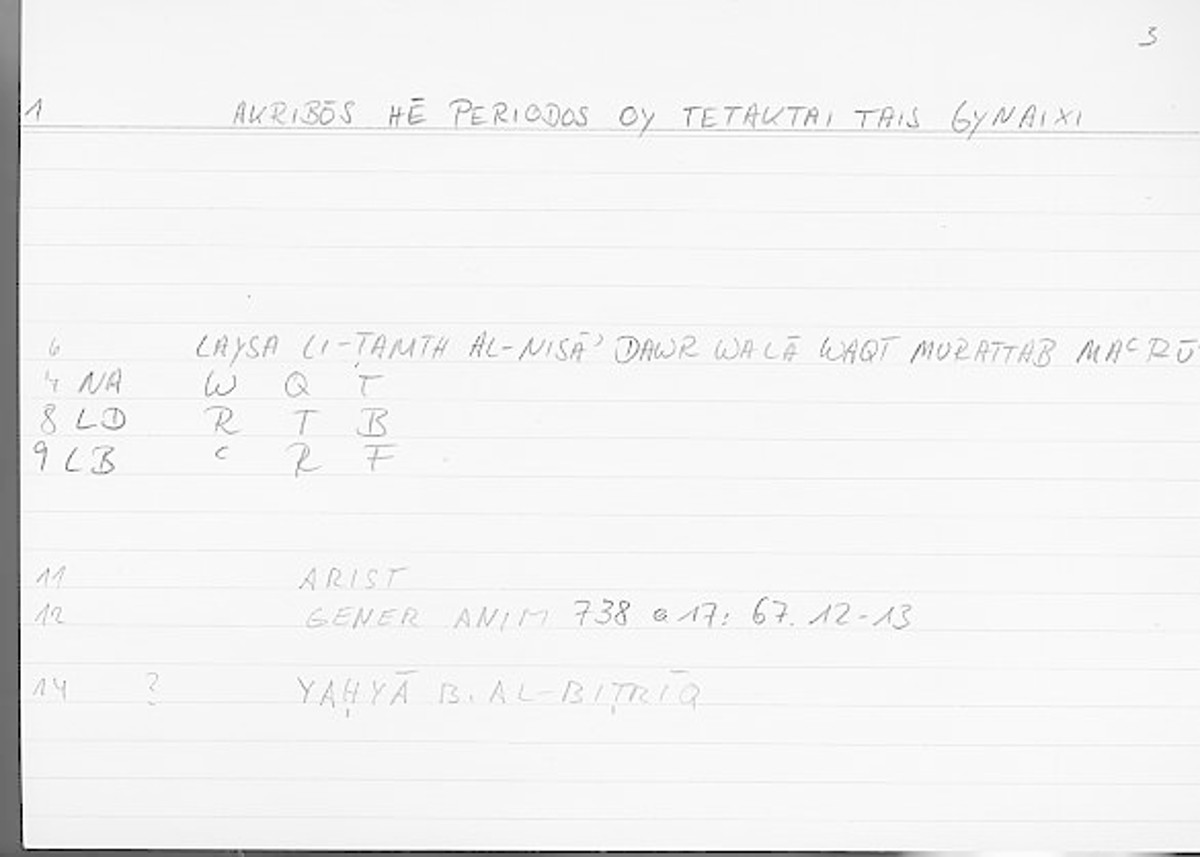 3
1 AKRIBŌS HĒ PERIODOS OY TETAKTAI TAIS GYNAIXI
6 LAYSA LI-ṬAMTH AL-NISĀʾ DAWR WALĀ WAQT MURATTAB MAʿRŪ
4 NA W Q T
8 LD R T B
9 LB ʿ R F
11 ARIST
12 GENER ANIM 738 a 17: 67. 12-13
14 ? YAḤYĀ B. AL-BIṬRĪQ